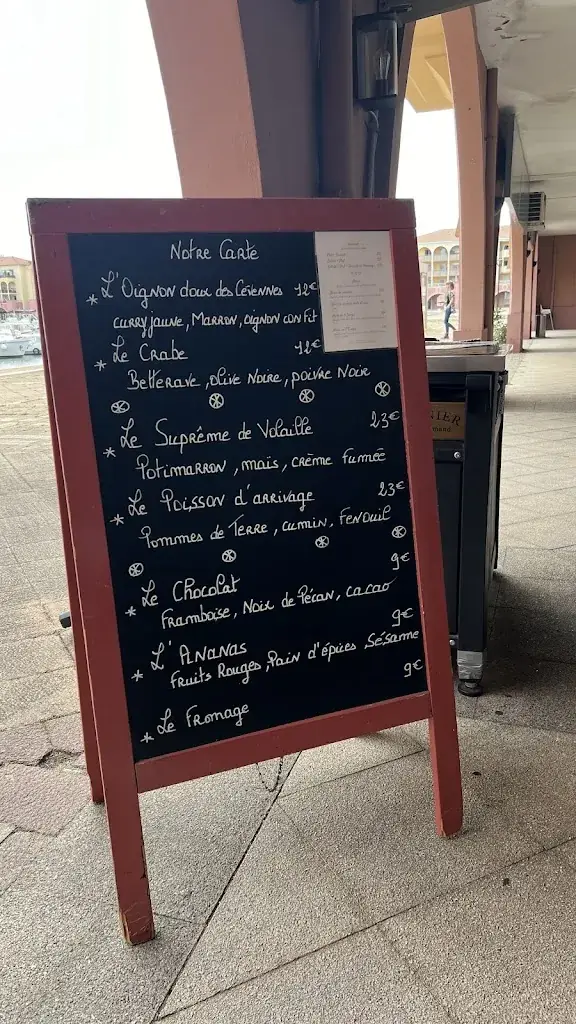 Notre Carte
* L'Oignon doux des Cévennes 12€
curry jaune, Marron, oignon confit
* Le Crabe 12€
Betterave, olive Noire, poivre Noir
* Le Suprême de Volaille 23€
Potimarron, maïs, crème fumée
* Le Poisson d'arrivage 23€
Pommes de Terre, cumin, Fenouil
* Le Chocolat 9€
Framboise, Noix de Pécan, cacao
* L'Ananas 9€
Fruits Rouges, Pain d'épices, Sésame
* Le Fromage 9€
NIER